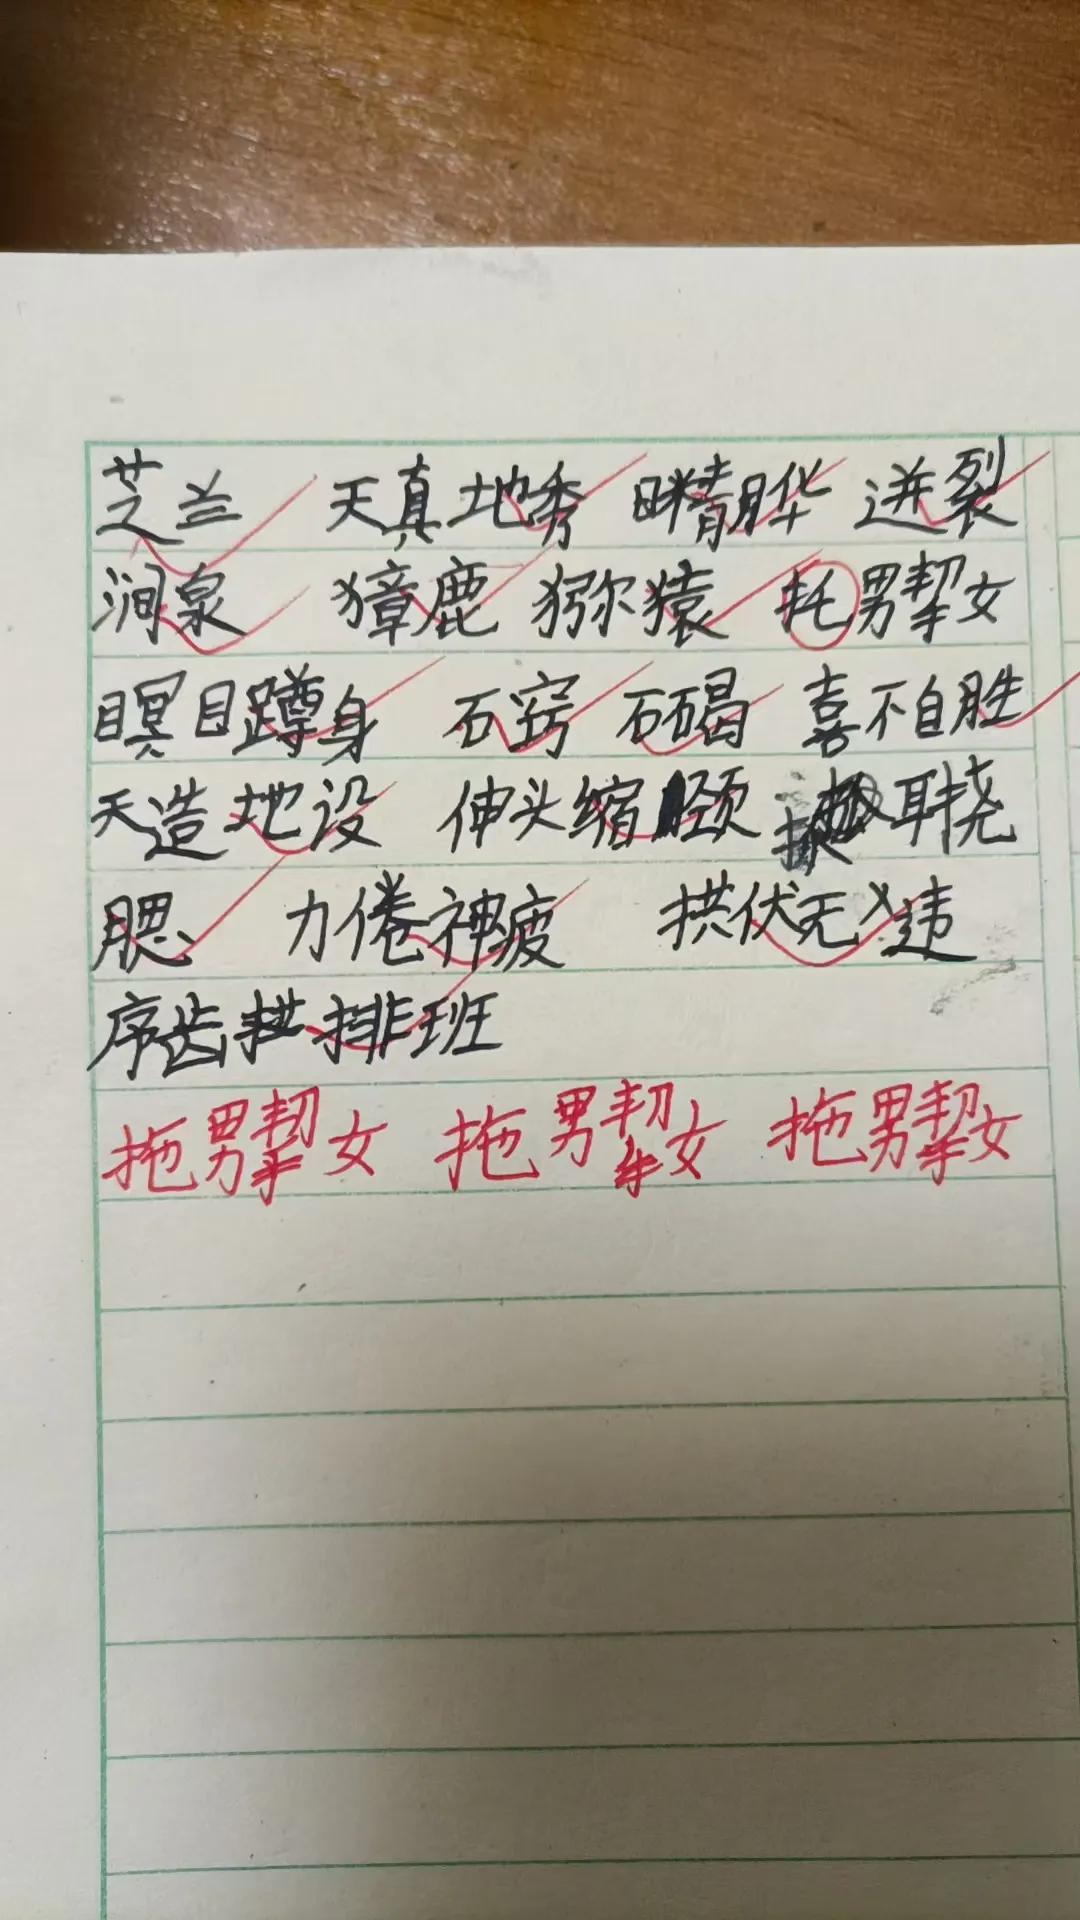 芝兰 天真地秀 日精月华 迸裂
涧泉 獐鹿 猕猿 男挈女
瞑目蹲身 石窍 石碣 喜不自胜
天造地设 伸头缩颈 抓耳挠
腮 力倦神疲 拱伏无违
序齿排班
拖男挈女 拖男挈女 拖男挈女